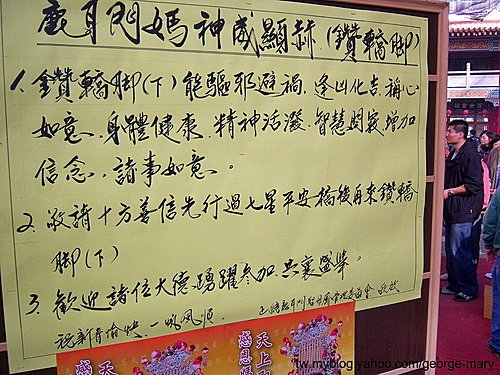 鹿耳門媽神威顯赫(鑽轎腳)
1. 鑽轎腳(下)能驅邪避禍.逢凶化吉.稱心
如意.身體健康.精神活潑.智慧開竅增加
信念.諸事如意.。
2. 敬請十方善信先行過七星平安橋後再來鑽轎
腳(下)
3. 歡迎諸位大德.踴躍參加.共襄盛舉。
祝新春愉快.一帆風順.
委員會 敬啟
天上
感恩
天
感
tw.myblog.yahoo.com/george-mary